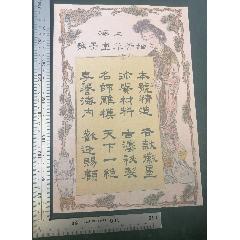 上海
墨號
本號精造 各款徽墨
珍寶材料 古法秘製
名師雕模 天下一絕
享譽海内 歡迎賜顧